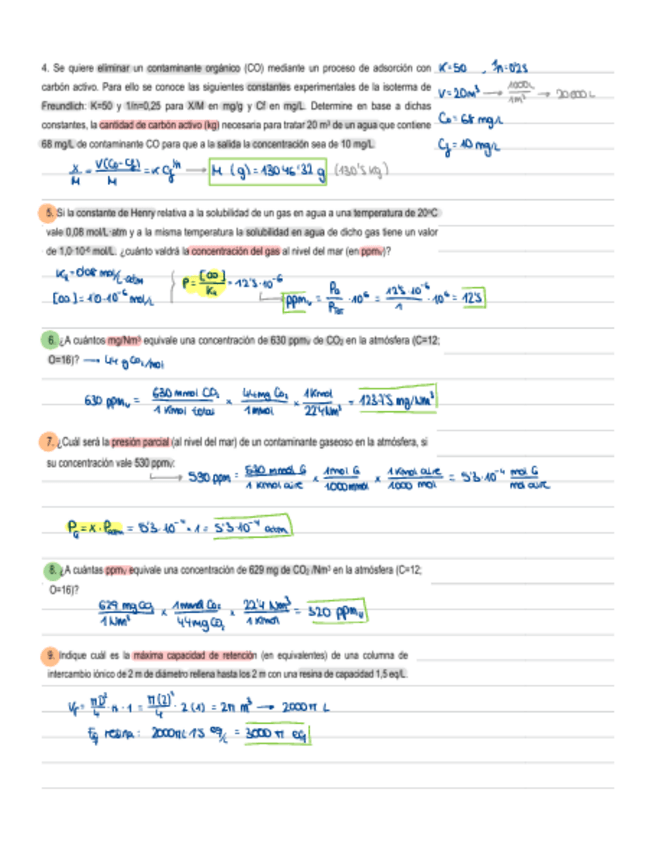 4. Se quiere eliminar un contaminante orgánico (CO) mediante un proceso de adsorción con
carbón activo. Para ello se conoce las siguientes constantes experimentales de la isoterma de
Freundlich: K=50 y 1/n=0,25 para X/M en mg/g y Cf en mg/L. Determine en base a dichas
constantes, la cantidad de carbón activo (kg) necesaria para tratar 20 m³ de un agua que contiene
68 mg/L de contaminante CO para que a la salida la concentración sea de 10 mg/L.
K=50 , 1/n=0'25
V=20m³ → 1000L/1m³ → 20000L
C₀= 68 mg/L
Cf = 10 mg/L
X/M = V(C₀-Cf)/M = K Cf^1/n → M (g) = 13046'32 g (130'5 kg)
5. Si la constante de Henry relativa a la solubilidad de un gas en agua a una temperatura de 20ºC
vale 0,08 mol/L·atm y a la misma temperatura la solubilidad en agua de dicho gas tiene un valor
de 1,0·10⁻⁶ mol/L. ¿cuánto valdrá la concentración del gas al nivel del mar (en ppmv)?
[CO] = 1'0·10⁻⁶ mol/L
P = [CO]/K_H = 12'5·10⁻⁶
ppmv = PG/PTot · 10⁶ = 12'5·10⁻⁶/1 · 10⁶ = 12'5
6. ¿A cuántos mg/Nm³ equivale una concentración de 630 ppmv de CO₂ en la atmósfera (C=12;
O=16)? → 44 g CO₂/mol
630 ppmv = 630 mmol CO₂/1 Kmol total × 44mg CO₂/1mmol × 1Kmol/22'4Nm³ = 1237'5 mg/Nm³
7. ¿Cuál será la presión parcial (al nivel del mar) de un contaminante gaseoso en la atmósfera, si
su concentración vale 530 ppmv:
→ 530 ppm = 530 mmol G/1 Kmol aire × 1mol G/1000mmol × 1 Kmol aire/1000 mol = 5'3·10⁻⁴ mol G/mol aire
PG = X · Patm = 5'3·10⁻⁴ · 1 = 5'3·10⁻⁴ atm
8. ¿A cuántas ppmv equivale una concentración de 629 mg de CO₂ /Nm³ en la atmósfera (C=12;
O=16)?
629 mg CO₂/1 Nm³ × 1mmol CO₂/44mg CO₂ × 22'4 Nm³/1 Kmol = 320 ppmv
9. Indique cuál es la máxima capacidad de retención (en equivalentes) de una columna de
intercambio iónico de 2 m de diámetro rellena hasta los 2 m con una resina de capacidad 1,5 eq/L.
= πD²/4 · h · 1 = π(2)²/4 · 2 (1) = 2π m³ → 2000π L
Eq resina: 2000πL · 1'5 eq/L = 3000 π eq